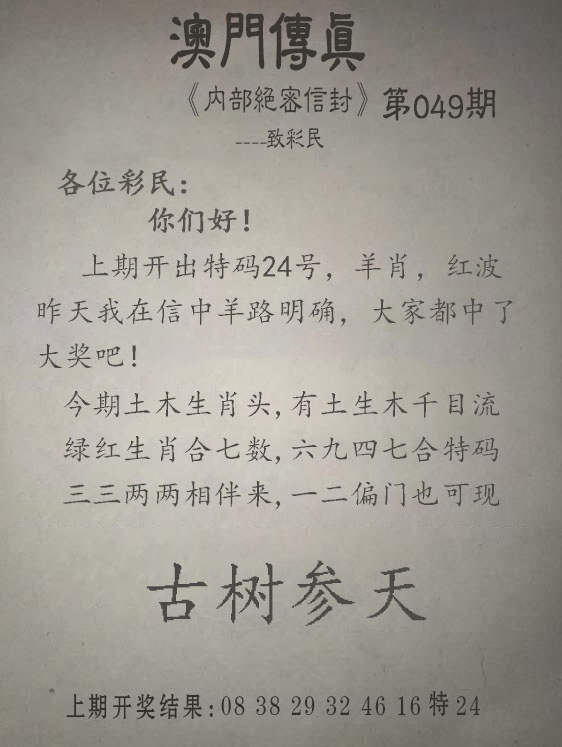 澳門傳眞
《内部絕密信封》第049期
----致彩民
各位彩民：
你们好！
上期开出特码24号，羊肖，红波
昨天我在信中羊路明确，大家都中了
大奖吧！
今期土木生肖头,有土生木千目流
绿红生肖合七数,六九四七合特码
三三两两相伴来,一二偏门也可现
古树参天
上期开奖结果:08 38 29 32 46 16 特 24